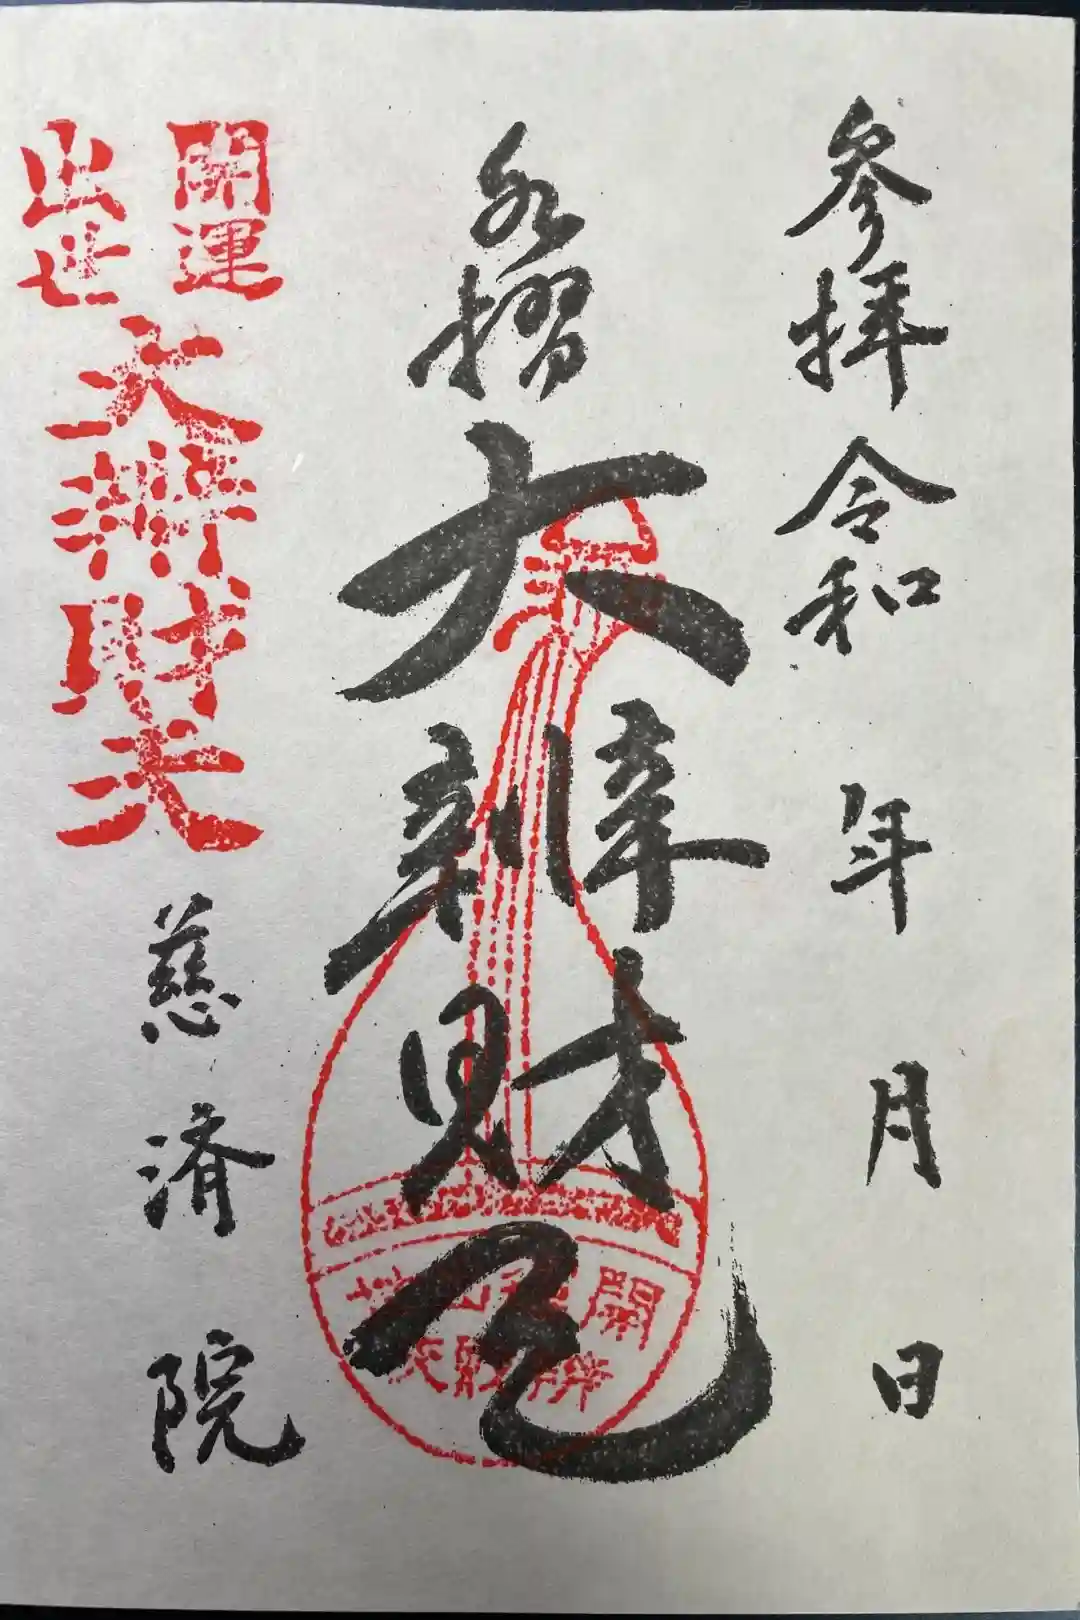 参拝 令和 年 月 日
水摺
大辨財天
開運出世
辨財天
開運
出世
大辨財天
慈済院